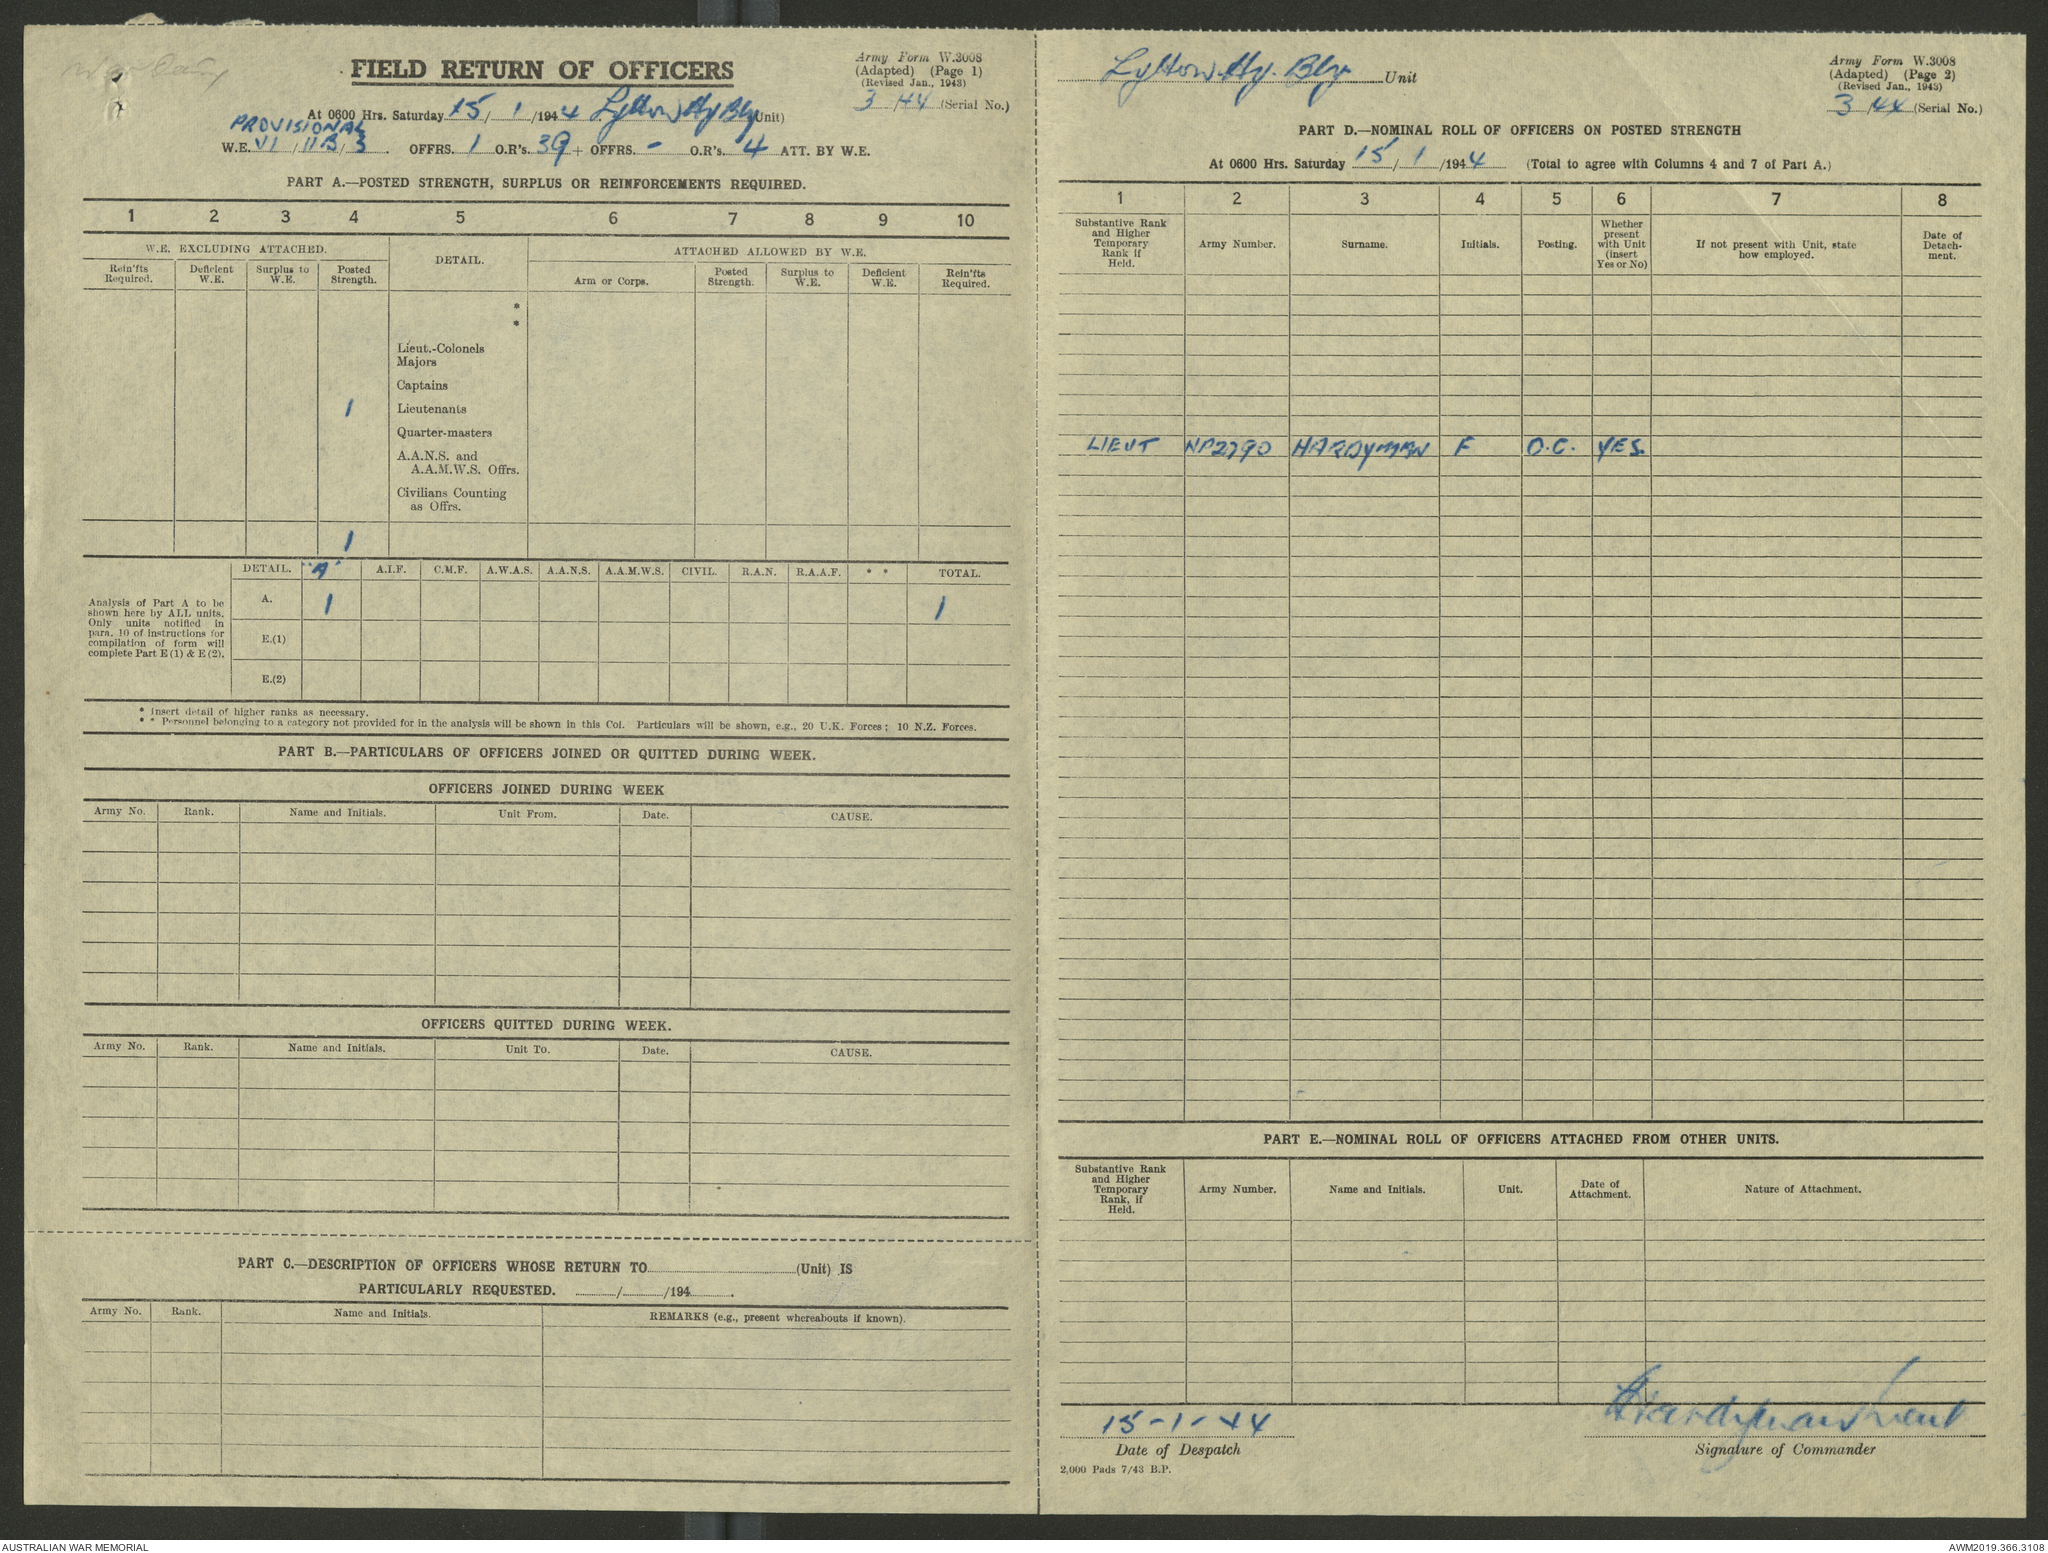 Army Form W.3008
(Adapted) (Page 1)
(Revised Jan., 1943)
3 /44 (Serial No.)
FIELD RETURN OF OFFICERS
At 0600 Hrs. Saturday 15/1/1944 Lytton Hy Bty (Unit)
PROVISIONAL
W.E. VI/11B/3. OFFRS. 1 O.R's. 39 + OFFRS. - O.R's. 4 ATT. BY W.E.
PART A.—POSTED STRENGTH, SURPLUS OR REINFORCEMENTS REQUIRED.
1 2 3 4 5 6 7 8 9 10
W.E. EXCLUDING ATTACHED. DETAIL. ATTACHED ALLOWED BY W.E.
Rein'fts Required. Deficient W.E. Surplus to W.E. Posted Strength. Arm or Corps. Posted Strength. Surplus to W.E. Deficient W.E. Rein'fts Required.
*
*
Lieut.-Colonels
Majors
Captains
1 Lieutenants
Quarter-masters
A.A.N.S. and
A.A.M.W.S. Offrs.
Civilians Counting
as Offrs.
1
Analysis of Part A to be
shown here by ALL units.
Only units notified in
para. 10 of instructions for
compilation of form will
complete Part E (1) & E (2).
DETAIL. "A" A.I.F. C.M.F. A.W.A.S. A.A.N.S. A.A.M.W.S. CIVIL. R.A.N. R.A.A.F. * * TOTAL.
A. 1 1
E.(1)
E.(2)
* Insert detail of higher ranks as necessary.
* * Personnel belonging to a category not provided for in the analysis will be shown in this Col. Particulars will be shown, e.g., 20 U.K. Forces; 10 N.Z. Forces.
PART B.—PARTICULARS OF OFFICERS JOINED OR QUITTED DURING WEEK.
OFFICERS JOINED DURING WEEK
Army No. Rank. Name and Initials. Unit From. Date. CAUSE.
OFFICERS QUITTED DURING WEEK.
Army No. Rank. Name and Initials. Unit To. Date. CAUSE.
PART C.—DESCRIPTION OF OFFICERS WHOSE RETURN TO (Unit) IS
PARTICULARLY REQUESTED. / /194 .
Army No. Rank. Name and Initials. REMARKS (e.g., present whereabouts if known).
Lytton Hy. Bty Unit
Army Form W.3008
(Adapted) (Page 2)
(Revised Jan., 1943)
3 /44 (Serial No.)
PART D.—NOMINAL ROLL OF OFFICERS ON POSTED STRENGTH
At 0600 Hrs. Saturday 15/1/1944 (Total to agree with Columns 4 and 7 of Part A.)
1 2 3 4 5 6 7 8
Substantive Rank and Higher Temporary Rank if Held. Army Number. Surname. Initials. Posting. Whether present with Unit (insert Yes or No) If not present with Unit, state how employed. Date of Detachment.
LIEUT NP2790 HARDYMAN F O.C. YES.
PART E.—NOMINAL ROLL OF OFFICERS ATTACHED FROM OTHER UNITS.
Substantive Rank and Higher Temporary Rank, if Held. Army Number. Name and Initials. Unit. Date of Attachment. Nature of Attachment.
15-1-44
Date of Despatch
FHardyman Lieut
Signature of Commander
2,000 Pads 7/43 B.P.
AUSTRALIAN WAR MEMORIAL
AWM2019.366.3108